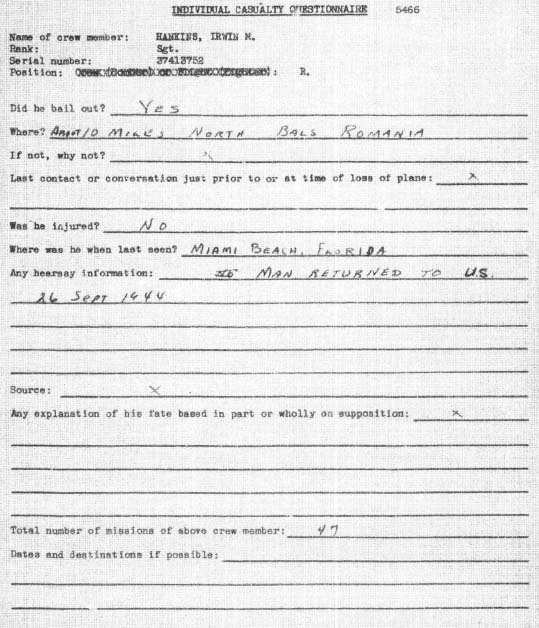 INDIVIDUAL CASUALTY QUESTIONNAIRE 5466
Name of crew member: HANKINS, IRWIN M.
Rank: Sgt.
Serial number: 37413752
Position: : R.
Did he bail out? YES
Where? ABOUT 10 MILES NORTH BALS ROMANIA
If not, why not? x
Last contact or conversation just prior to or at time of loss of plane: x
Was he injured? NO
Where was he when last seen? MIAMI BEACH, FLORIDA
Any hearsay information: MAN RETURNED TO U.S.
26 SEPT 1944
Source: X
Any explanation of his fate based in part or wholly on supposition: x
Total number of missions of above crew member: 47
Dates and destinations if possible: